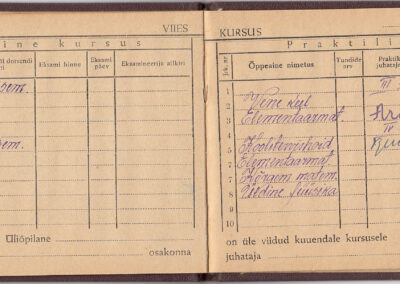 VIIES
ine kursus
Eksami hinne
Eksami päev
Eksamineerija allkiri
sem.
sem.
Üliõpilane
osakonna
KURSUS
Praktili
Jrk. nr
Õppeaine nimetus
Tundide arv
Praktik
juhataja
1
2 Vene keel
3 Elementaarmat.
4
5 Koolitervishoid
6 Elementaarmat
7 Kõrgem matem.
8 Üldine füüsika
9
10
III
IV
on üle viidud kuuendale kursusele
juhataja